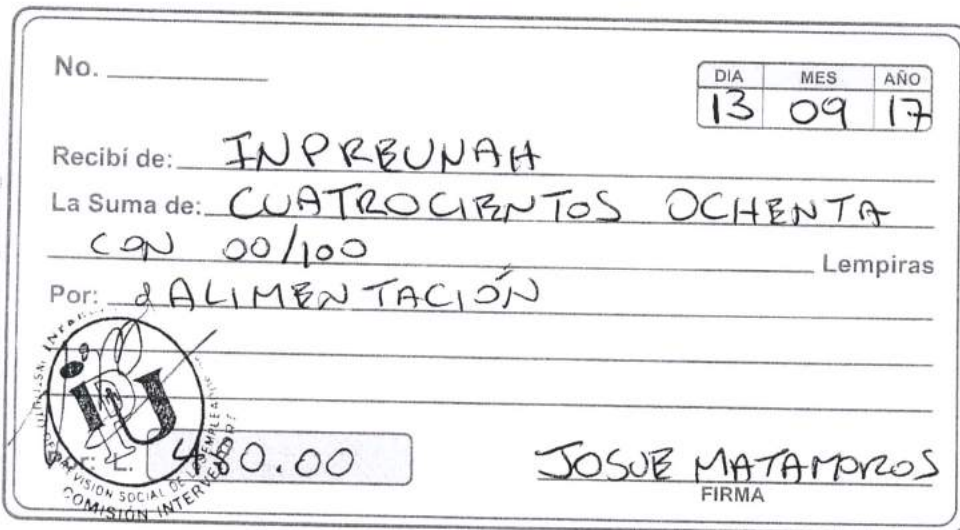 No.
DIA MES AÑO
13 09 17
Recibí de: INPREUNAH
La Suma de: CUATROCIENTOS OCHENTA
CON 00/100 Lempiras
Por: ALIMENTACIÓN
L. 480.00
JOSUE MATAMOROS
FIRMA
PREVISION SOCIAL DE LOS EMPLEADOS
COMISIÓN INTERVENTORA